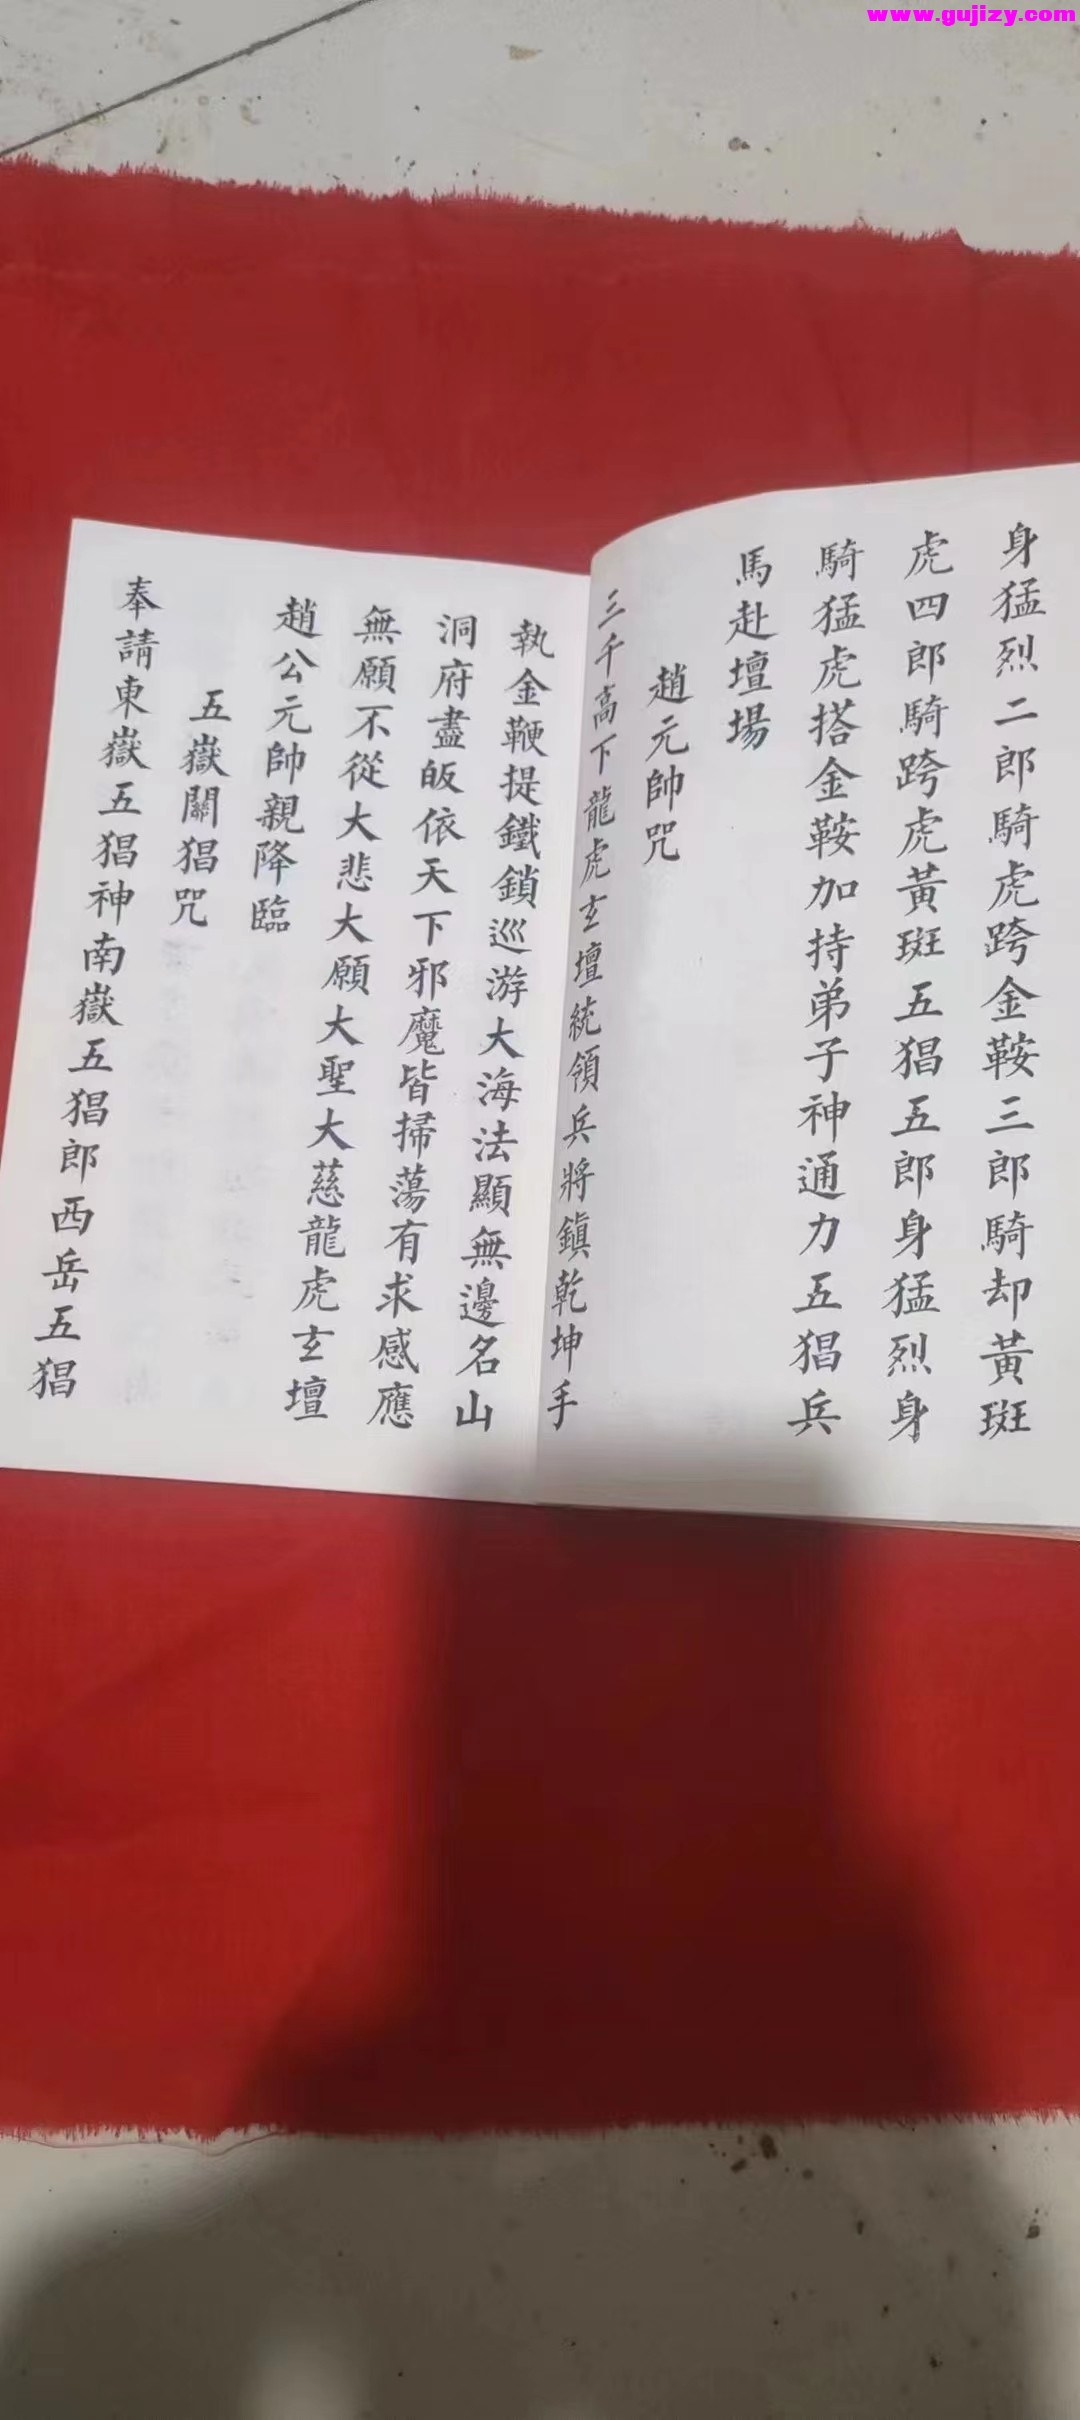 www.gujizy.com
身猛烈二郎騎虎跨金鞍三郎騎却黃斑
虎四郎騎跨虎黃斑五猖五郎身猛烈身
騎猛虎搭金鞍加持弟子神通力五猖兵
馬赴壇場
趙元帥咒
三千高下龍虎玄壇統領兵將鎮乾坤手
執金鞭提鐵鎖巡游大海法顯無邊名山
洞府盡皈依天下邪魔皆掃蕩有求感應
無願不從大悲大願大聖大慈龍虎玄壇
趙公元帥親降臨
五嶽關猖咒
奉請東嶽五猖神南嶽五猖郎西岳五猖